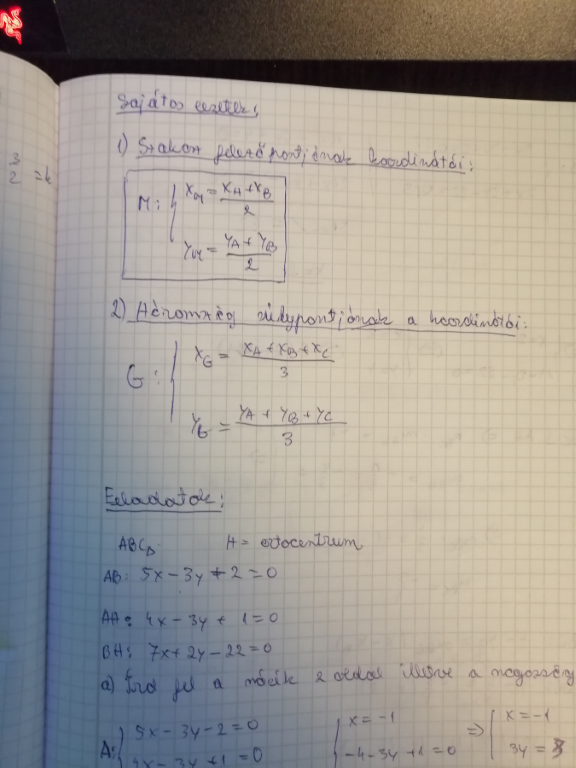 3
2 = k
Sajátos esetek:
1) Szakasz felezőpontjának koordinátái:
M: { x_M = (x_A + x_B) / 2
y_M = (y_A + y_B) / 2
2) Háromszög súlypontjának a koordinátái:
G: { x_G = (x_A + x_B + x_C) / 3
y_G = (y_A + y_B + y_C) / 3
Feladatok:
ABC△ H = ortocentrum
AB: 5x - 3y + 2 = 0
AH: 4x - 3y + 1 = 0
BH: 7x + 2y - 22 = 0
a) Írd fel a másik 2 oldal illetve a magasság
A: { 5x - 3y - 2 = 0 { x = -1 => { x = -1
4x - 3y + 1 = 0 -4 - 3y + 1 = 0 3y =